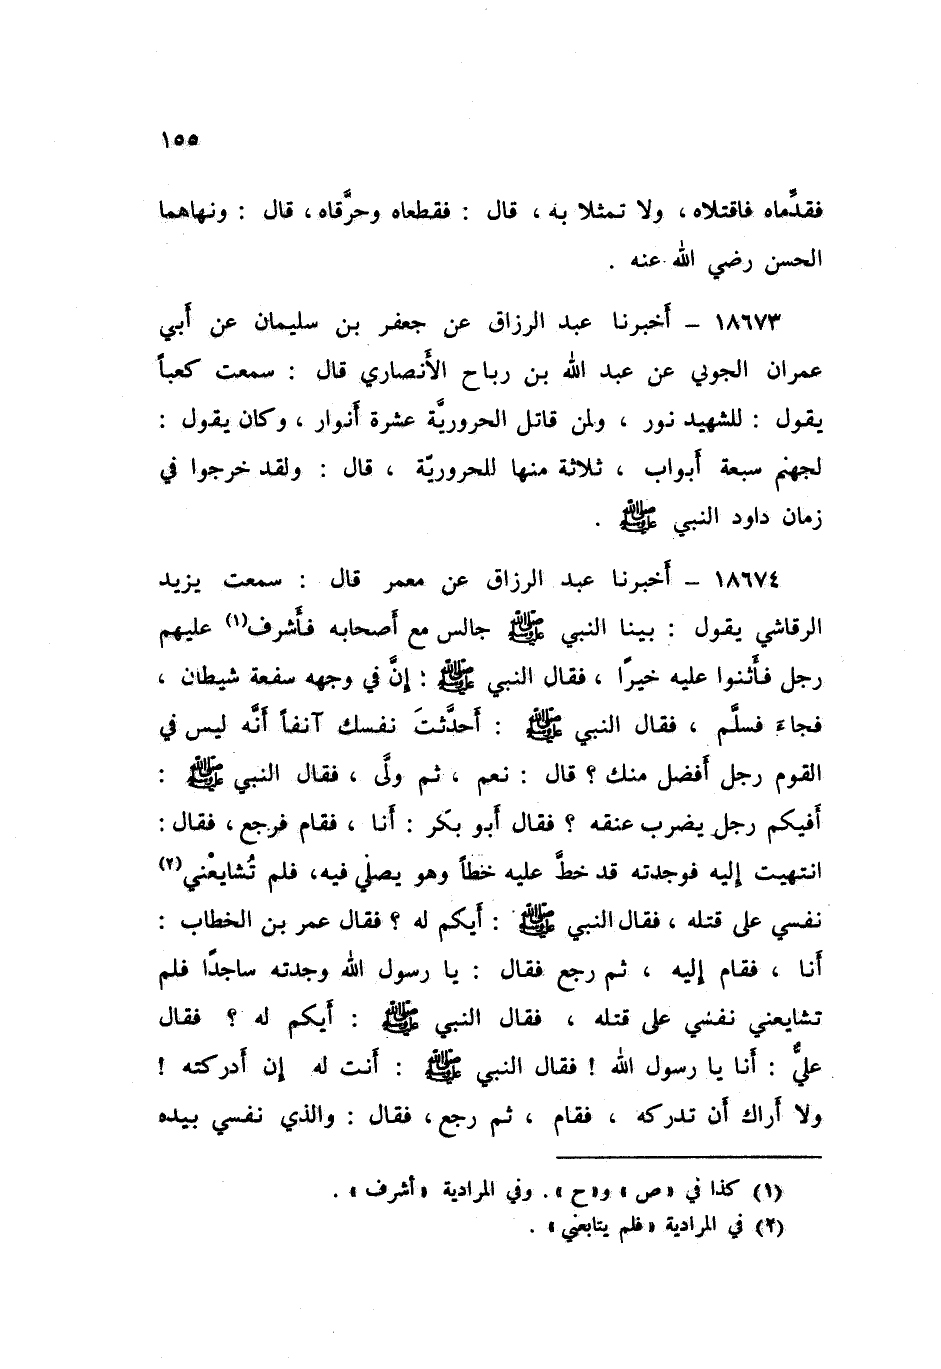 ١٥٥
فقدِّماه فاقتلاه، ولا تمثلا به، قال : فقطعاه وحرَّقاه، قال : ونهاهما
الحسن رضي الله عنه .
١٨٦٧٣ – أَخبرنا عبد الرزاق عن جعفر بن سليمان عن أَبي
عمران الجوني عن عبد الله بن رباح الأَنصاري قال : سمعت كعباً
يقول : للشهيد نور ، ولمن قاتل الحروريَّة عشرة أَنوار ، وكان يقول :
لجهنم سبعة أَبواب ، ثلاثة منها للحروريّة ، قال : ولقد خرجوا في
زمان داود النبي ﷺ .
١٨٦٧٤ – أَخبرنا عبد الرزاق عن معمر قال : سمعت يزيد
الرقاشي يقول : بينا النبي ﷺ جالس مع أَصحابه فأَشرف(١) عليهم
رجل فأَثنوا عليه خيرًا ، فقال النبي ﷺ : إنَّ في وجهه سفعة شيطان ،
فجاءَ فسلَّم ، فقال النبي ﷺ : أَحدَّثتَ نفسك آنفاً أَنَّه ليس في
القوم رجل أَفضل منك ؟ قال : نعم ، ثم ولَّى ، فقال النبي ﷺ :
أَفيكم رجل يضرب عنقه ؟ فقال أَبو بكر : أَنا ، فقام فرجع، فقال :
انتهيت إليه فوجدته قد خطَّ عليه خطاً وهو يصلي فيه، فلم تُشايعْني(٢)
نفسي على قتله ، فقال النبي ﷺ : أَيكم له ؟ فقال عمر بن الخطاب :
أَنا ، فقام إليه ، ثم رجع فقال : يا رسول الله وجدته ساجدًا فلم
تشايعني نفسي على قتله ، فقال النبي ﷺ : أَيكم له ؟ فقال
عليٌّ : أَنا يا رسول الله ! فقال النبي ﷺ : أَنت له إن أَدركته !
ولا أَراك أَن تدركه ، فقام ، ثم رجع، فقال : والذي نفسي بيده
(١) كذا في «ص» و«ح». وفي المرادية «أشرف» .
(٢) في المرادية «فلم يتابعني» .